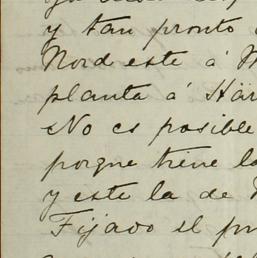 y tan pronto
Nord este á
planta á Här
No es posible
porque tiene la
y este la de
Fijado el pr